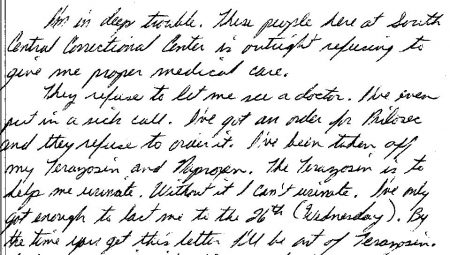 I'm in deep trouble. These people here at South
Central Correctional Center is outright refusing to
give me proper medical care.
They refuse to let me see a doctor. I've even
put in a sick call. I've got an order for Prilosec
and they refuse to order it. I've been taken off
my Terazosin and Naproxen. The Terazosin is to
help me urinate. Without it I can't urinate. I've only
got enough to last me to the 26th (Wednesday). By
the time you get this letter I'll be out of Terazosin.